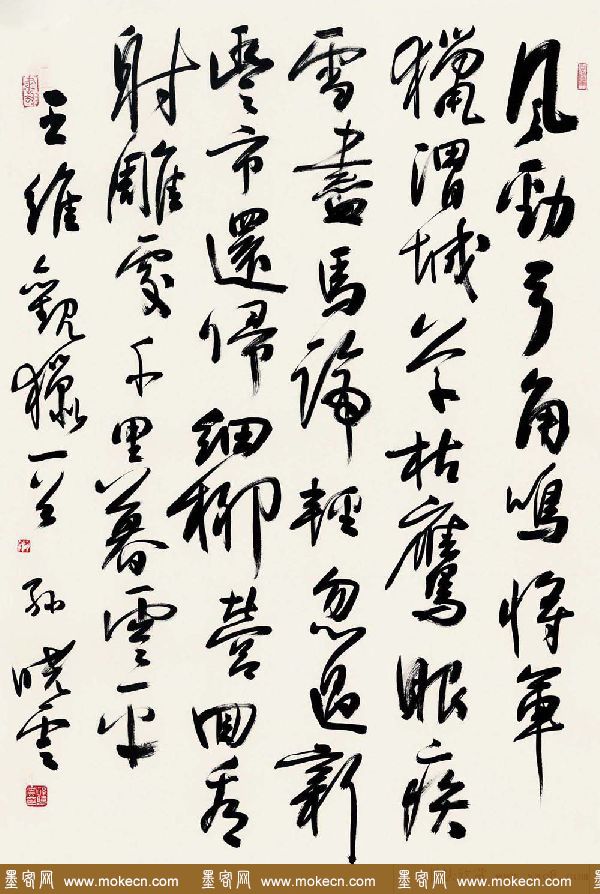 風勁弓角鳴將軍
獵渭城草枯鷹眼疾
雪盡馬蹄輕忽過新
豐市還歸細柳營回看
射雕處千里暮雲平
王維觀獵一首 孫曉雲
墨客网 www.mokecn.com 墨客网 www.mokecn.com 墨客网 www.mokecn.com